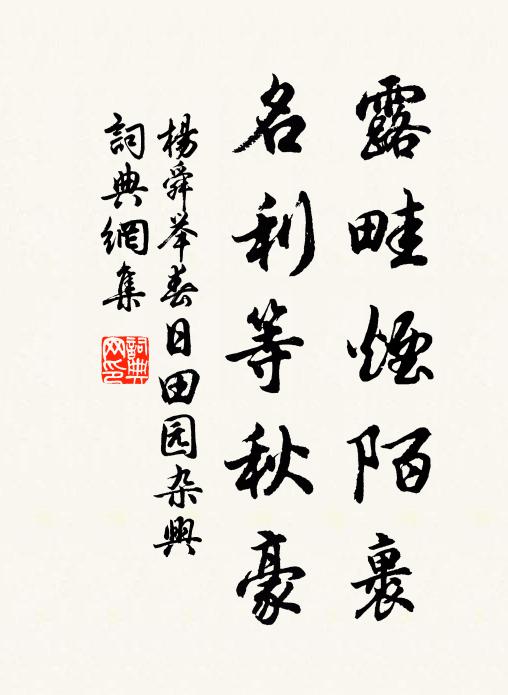 露畦煙陌裹
名利等秋豪
楊舜举春日田园杂興
詞典網集
詞典網印